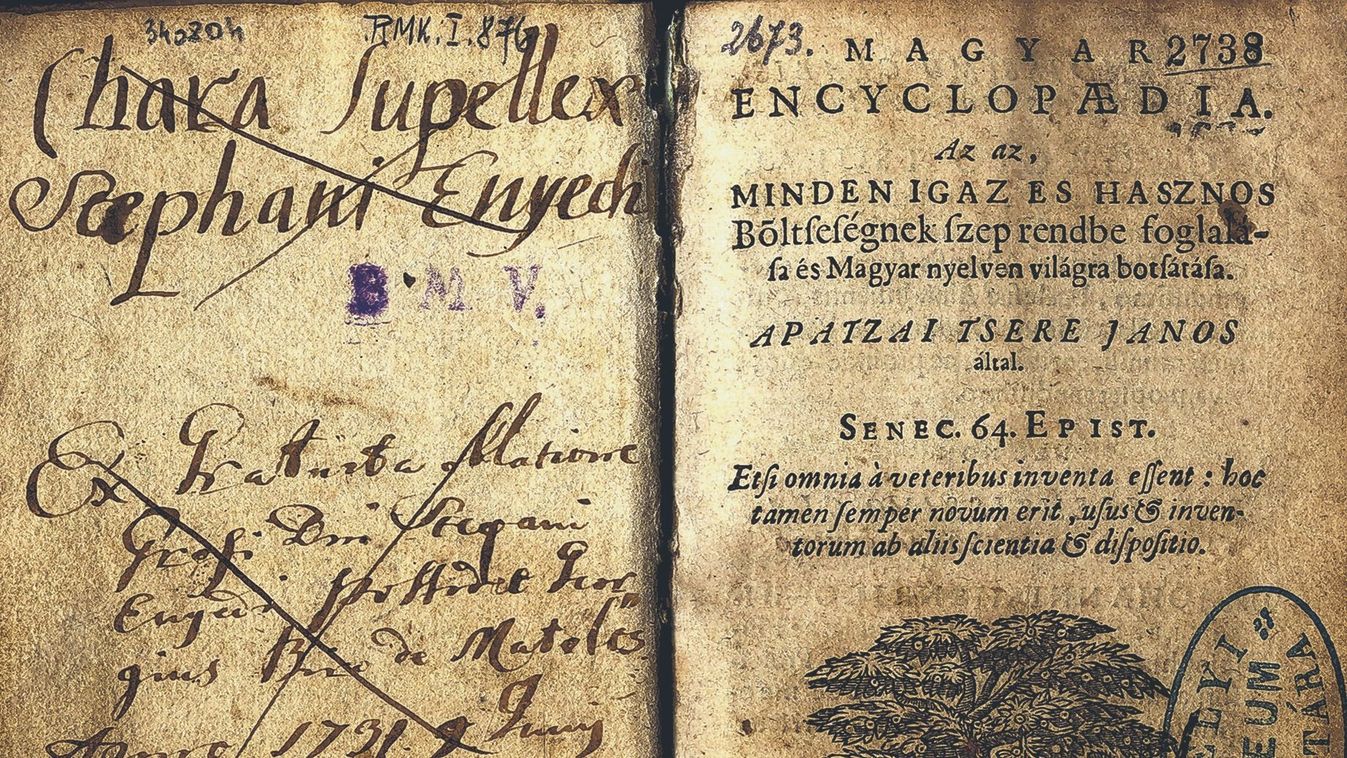 340204
RMK. I. 876
Chara Supellex
Stephani Enyedi
B. M. V.
Ex Gratuita
Stepani
de
Anno 1731. 9 Junij
2673.
2738
MAGYAR
ENCYCLOPÆDIA.
Az az,
MINDEN IGAZ ES HASZNOS
Bőltſeſégnek ſzep rendbe foglalá-
ſa és Magyar nyelven világra botſátáſa.
APATZAI TSERE JANOS
által.
SENEC. 64. EPIST.
Etſi omnia à veteribus inventa eſſent : hoc
tamen ſemper novum erit, uſus & inven-
torum ab aliis ſcientia & diſpoſitio.
TÁRA